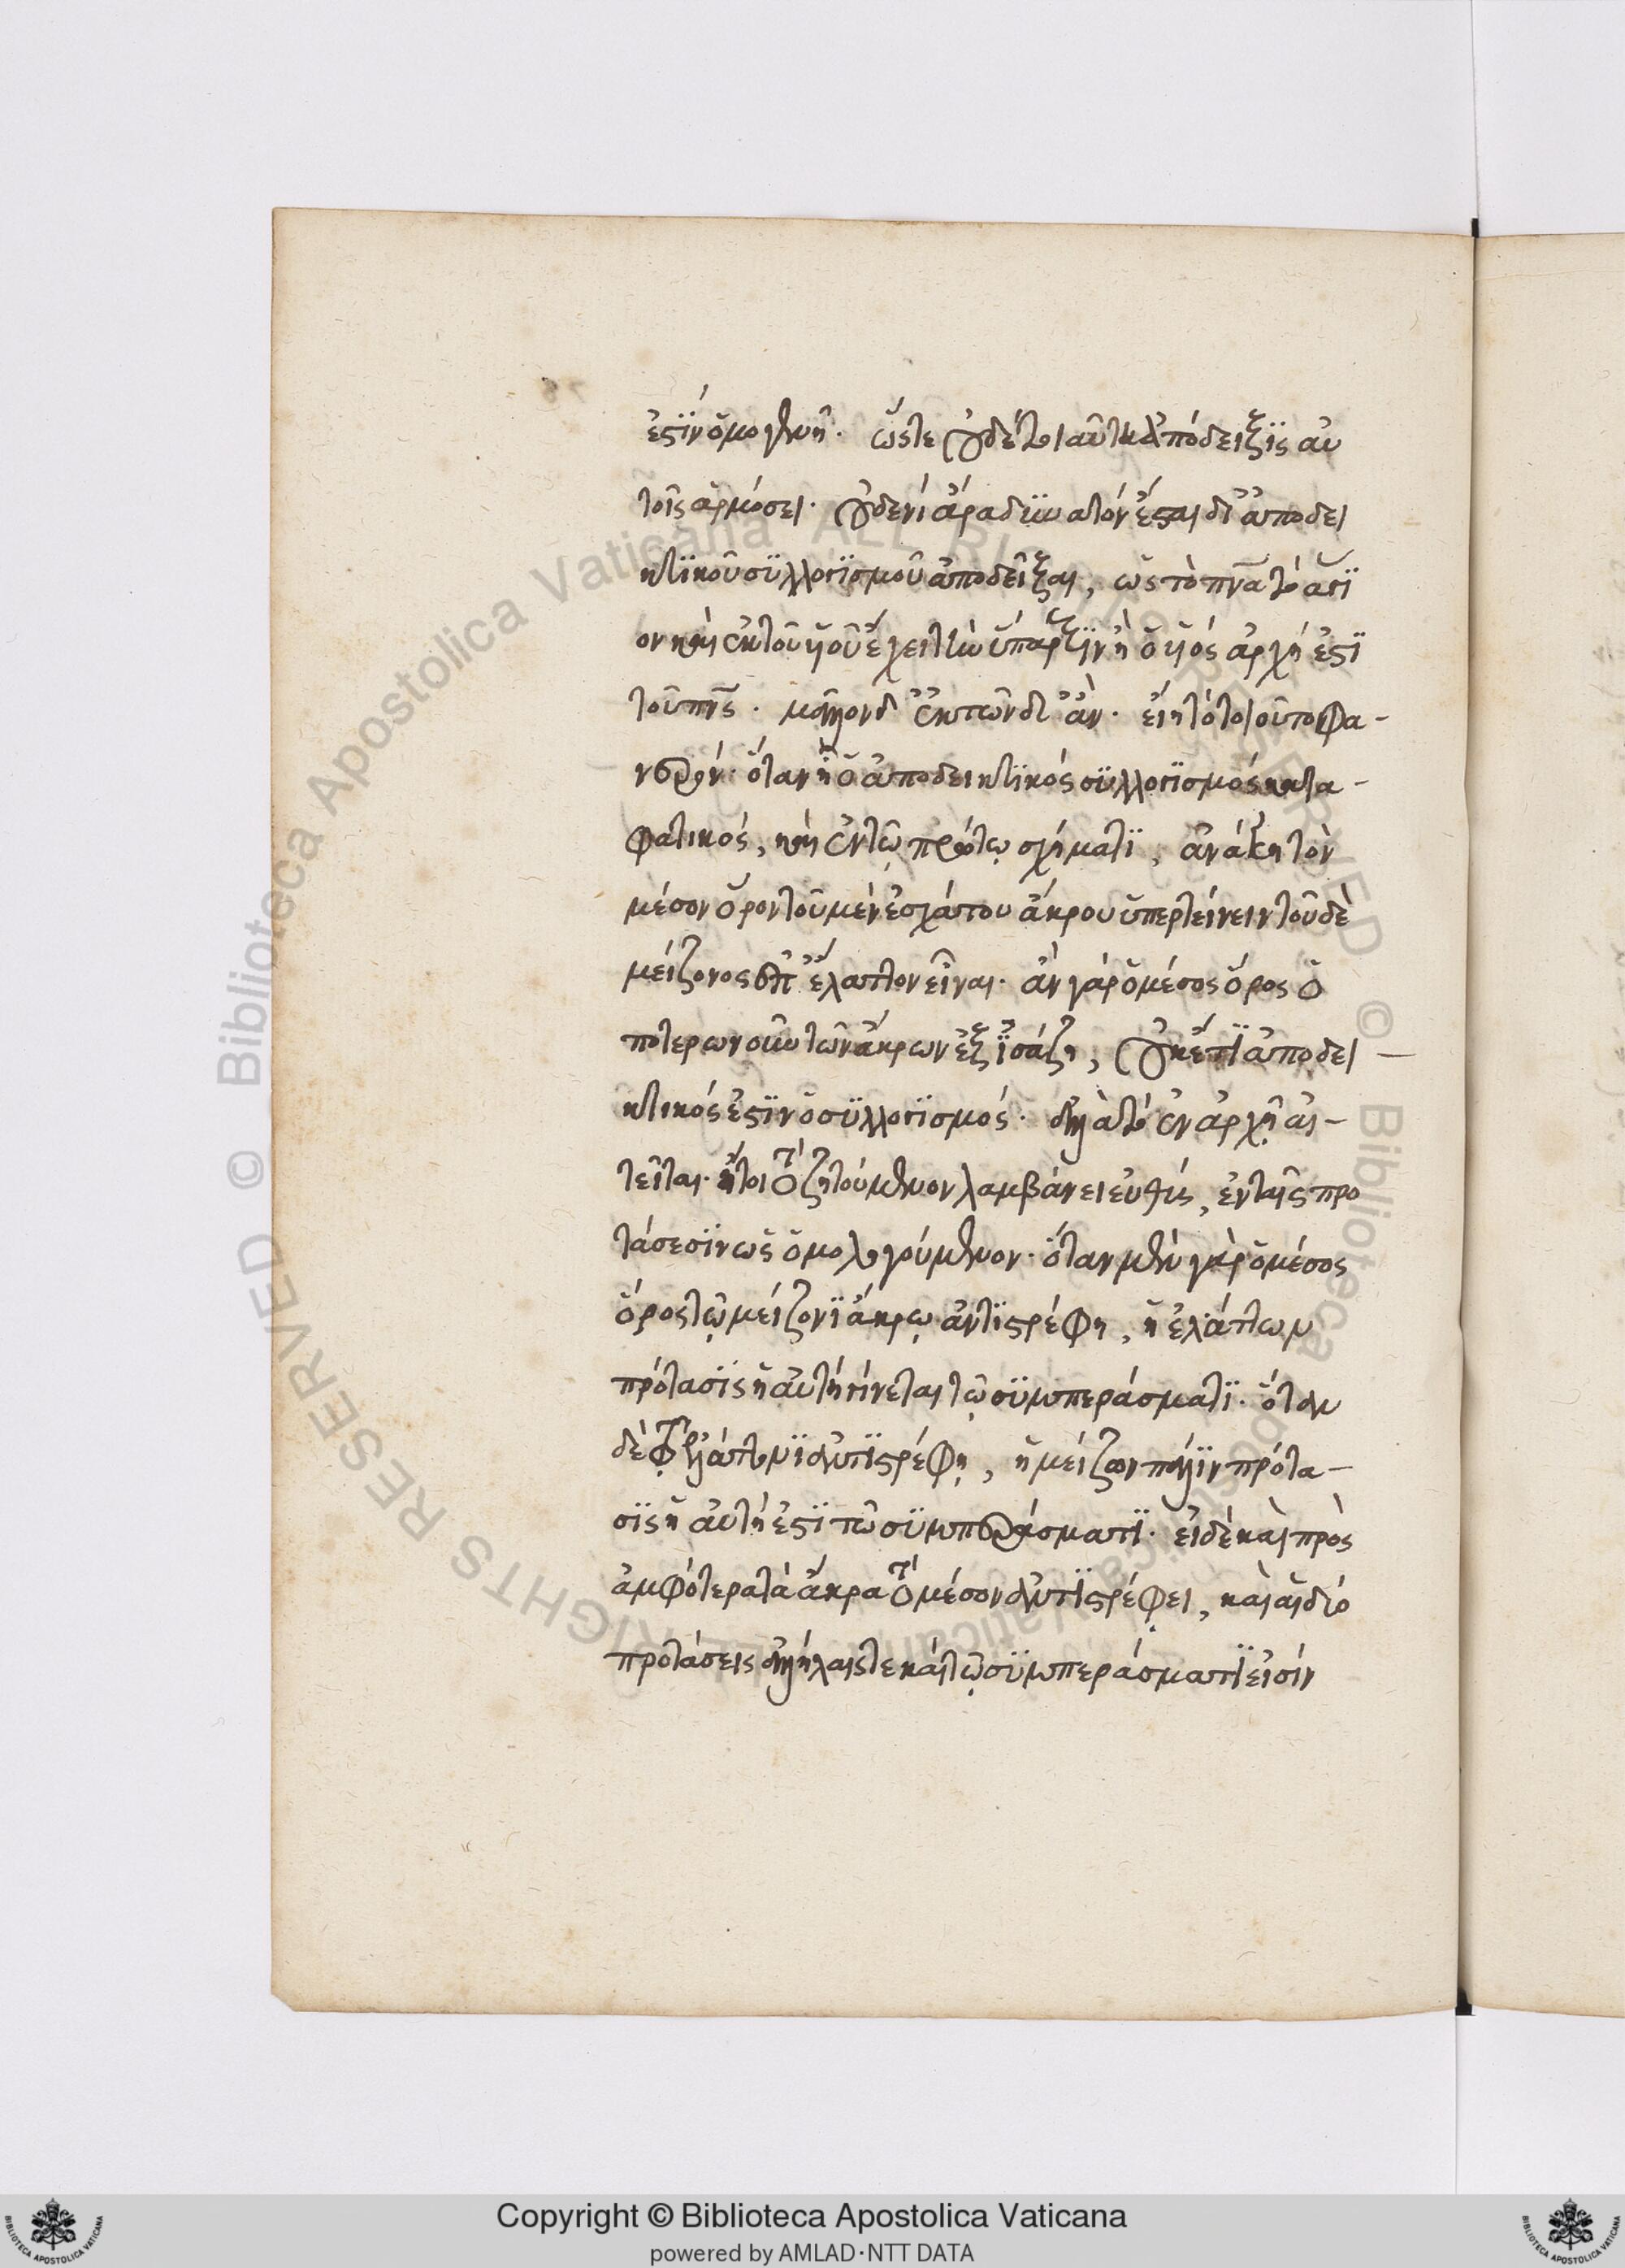 ἐστὶν ὁμογενῆ. ὥστε οὐδὲ τοιαῦται ἀπόδειξις αὐ
τοῖς ἁρμόσει. οὐδενὶ ἄρα δυνατόν ἔσται δι' ἀποδει
κτικοῦ συλλογισμοῦ ἀποδεῖξαι, ὡς τὸ πνα τὸ ἅγι
ον καὶ ἐκ τοῦ υἱοῦ ἔχει τὴν ὕπαρξιν ἢ ὁ υἱός ἀρχή ἐστι
τοῦ πνς. μᾶλλον δ' ἐκ τῶνδε ἂν εἴη τὸ τοιοῦτο φα-
νερόν. ὅταν ᾖ ὁ ἀποδεικτικός συλλογισμός κατα-
φατικός, καὶ ἐν τῷ πρώτῳ σχήματι, ἀνάγκη τὸν
μέσον ὅρον τοῦ μὲν ἐσχάτου ἄκρου ὑπερτείνειν τοῦ δὲ
μείζονος ἐπ' ἔλαττον εἶναι. ἂν γὰρ ὁ μέσος ὅρος ὁ
ποτερωνοῦν τῶν ἄκρων ἐξισάζῃ, οὐκέτι ἀποδει-
κτικός ἐστιν ὁ συλλογισμός. ἀλλὰ τὸ ἐν ἀρχῇ αἰ-
τεῖται. ἤτοι τὸ ζητούμενον λαμβάνει εὐθύς, ἐν ταῖς προ
τάσεσιν ὡς ὁμολογούμενον. ὅταν μὲν γὰρ ὁ μέσος
ὅρος τῷ μείζονι ἄκρῳ ἀντιστρέφῃ, ἡ ἐλάττων
πρότασις ἡ αὐτή γίνεται τῷ συμπεράσματι. ὅταν
δὲ τῷ ἐλάττονι ἀντιστρέφῃ, ἡ μείζων πάλιν πρότα-
σις ἡ αὐτή ἐστι τῷ συμπεράσματι. εἰ δὲ καὶ πρὸς
ἀμφότερα τὰ ἄκρα τὸ μέσον ἀντιστρέφει, καὶ αἱ δύο
προτάσεις ἀλλήλαις τε καὶ τῷ συμπεράσματι εἰσίν
Copyright © Biblioteca Apostolica Vaticana
powered by AMLAD·NTT DATA